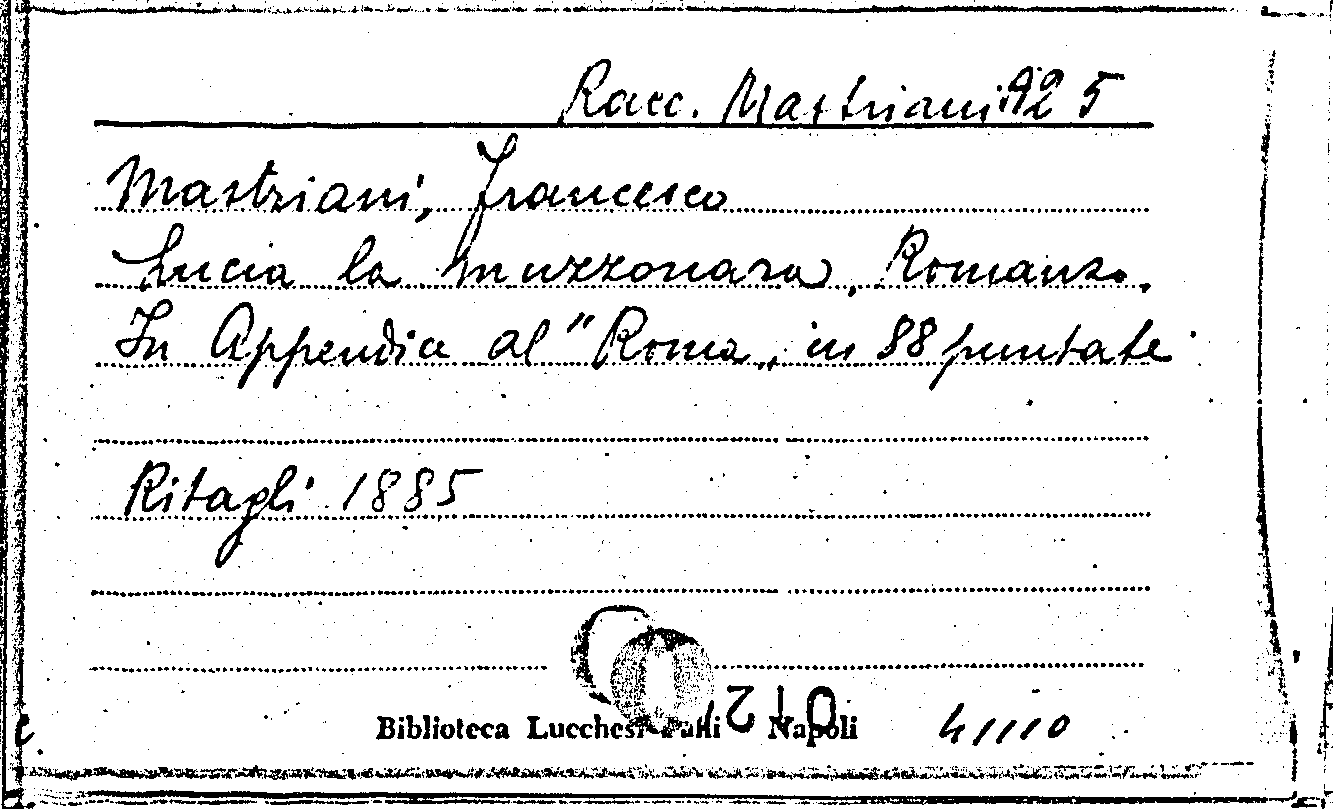 Racc. Mastriani A2 5
Mastriani, Francesco
Lucia la muzzonara, Romanzo.
In Appendice al "Roma„ in 88 puntate
Ritagli 1885
Biblioteca Lucchesi Palli Napoli
41110